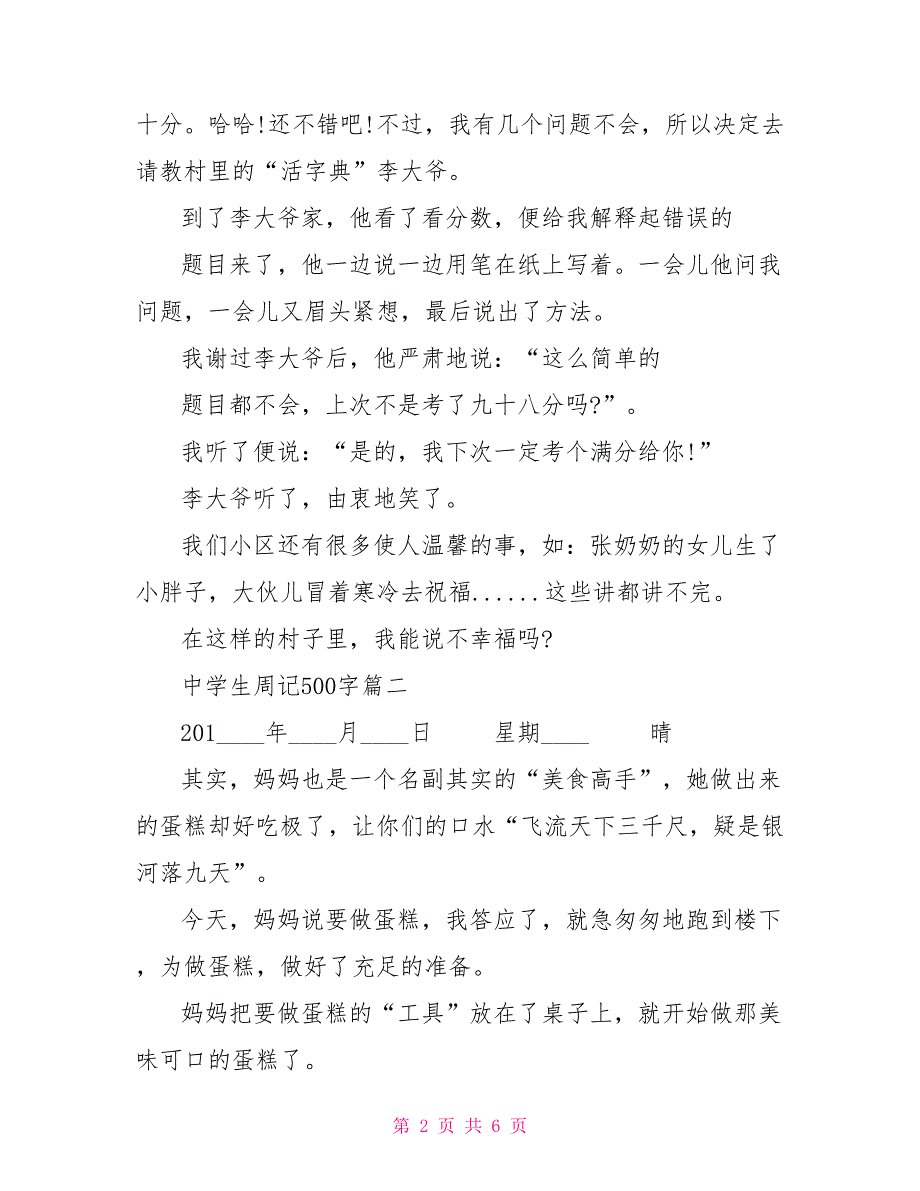 十分。哈哈!还不错吧!不过，我有几个问题不会，所以决定去
请教村里的“活字典”李大爷。
到了李大爷家，他看了看分数，便给我解释起错误的
题目来了，他一边说一边用笔在纸上写着。一会儿他问我
问题，一会儿又眉头紧想，最后说出了方法。
我谢过李大爷后，他严肃地说：“这么简单的
题目都不会，上次不是考了九十八分吗?”。
我听了便说：“是的，我下次一定考个满分给你!”
李大爷听了，由衷地笑了。
我们小区还有很多使人温馨的事，如：张奶奶的女儿生了
小胖子，大伙儿冒着寒冷去祝福......这些讲都讲不完。
在这样的村子里，我能说不幸福吗?
中学生周记500字篇二
201____年____月____日 星期____ 晴
其实，妈妈也是一个名副其实的“美食高手”，她做出来
的蛋糕却好吃极了，让你们的口水“飞流天下三千尺，疑是银
河落九天”。
今天，妈妈说要做蛋糕，我答应了，就急匆匆地跑到楼下
，为做蛋糕，做好了充足的准备。
妈妈把要做蛋糕的“工具”放在了桌子上，就开始做那美
味可口的蛋糕了。
第 2 页 共 6 页